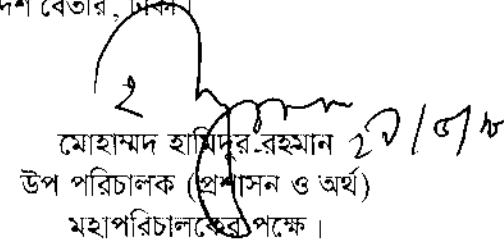 বেতার, ঢাকা।
মোহাম্মদ হামিদুর রহমান
উপ পরিচালক (প্রশাসন ও অর্থ)
মহাপরিচালকের পক্ষে।